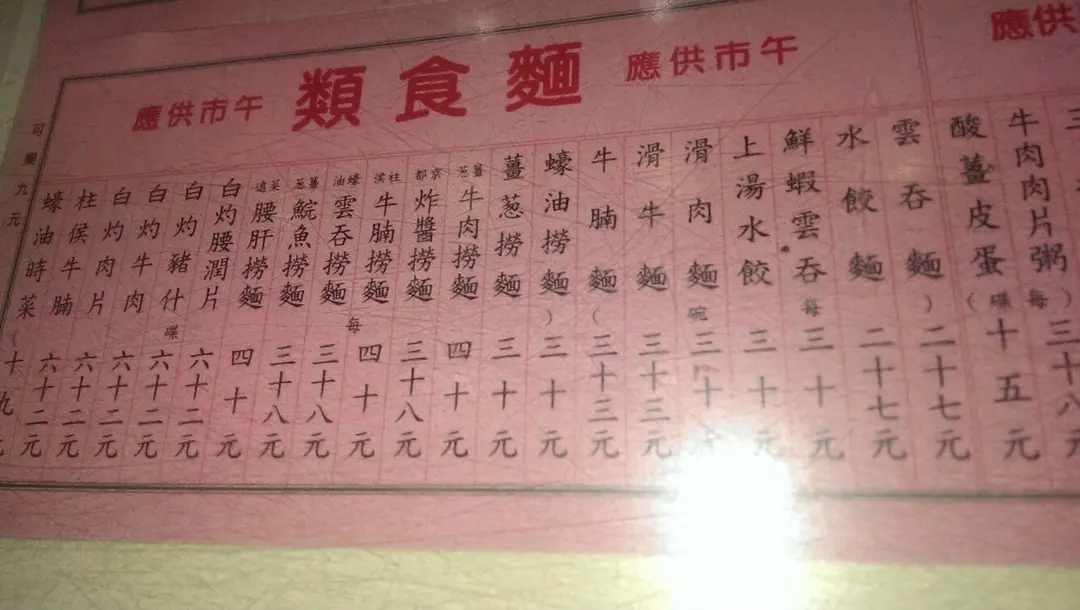 午市供應
麵食類
午市供應
供應
牛肉肉片粥 每 三十八元
酸薑皮蛋（碟 十五元
雲吞麵） 二十七元
水餃麵 二十七元
鮮蝦雲吞 每 三十元
上湯水餃 三十元
滑肉麵 碗 三十
滑牛麵 三十三元
牛腩麵（ 三十三元
蠔油撈麵） 三十元
薑葱撈麵 三十元
薑葱牛肉撈麵 四十元
京都炸醬撈麵 三十八元
柱侯牛腩撈麵 每 四十元
蠔油雲吞撈麵 三十八元
薑葱鯇魚撈麵 三十八元
菜遠腰肝撈麵 四十元
白灼腰潤片 六十二元
白灼豬什 碟 六十二元
白灼牛肉 六十二元
白灼肉片 六十二元
柱侯牛腩 六十二元
蠔油時菜（ 十九元
可樂九元